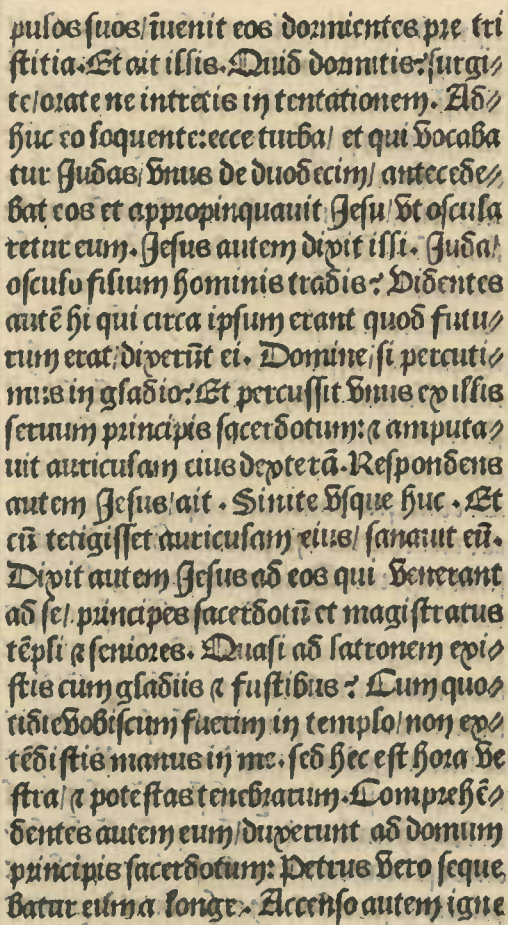 pulos suos/ īuenit eos dormientes pre tri
stitia. Et ait illis. Quid dormitis? surgi⸗
te/ orate ne intretis in tentationem. Ad⸗
huc eo loquente: ecce turba/ et qui vocaba
tur Judas/ vnus de duodecim/ antecede⸗
bat eos et appropinquauit Jesu/ vt oscula
retur eum. Jesus autem dixit illi. Juda/
osculo filium hominis tradis? Videntes
autē hi qui circa ipsum erant quod futu⸗
rum erat/ dixerūt ei. Domine/ si percuti⸗
mus in gladio? Et percussit vnus ex illis
seruum principis sacerdotum: ⁊ amputa⸗
uit auriculam eius dexterā. Respondens
autem Jesus/ ait. Sinite vsque huc. Et
cū tetigisset auriculam eius/ sanauit eū.
Dixit autem Jesus ad eos qui venerant
ad se/ principes sacerdotū et magistratus
tēpli ⁊ seniores. Quasi ad latronem exi⸗
stis cum gladiis ⁊ fustibus? Cum quo⸗
tidie vobiscum fuerim in templo/ non ex⸗
tēdistis manus in me. sed hec est hora ve
stra/ ⁊ potestas tenebrarum. Comprehē⸗
dentes autem eum/ duxerunt ad domum
principis sacerdotum: Petrus vero seque
batur eum a longe. Accenso autem igne